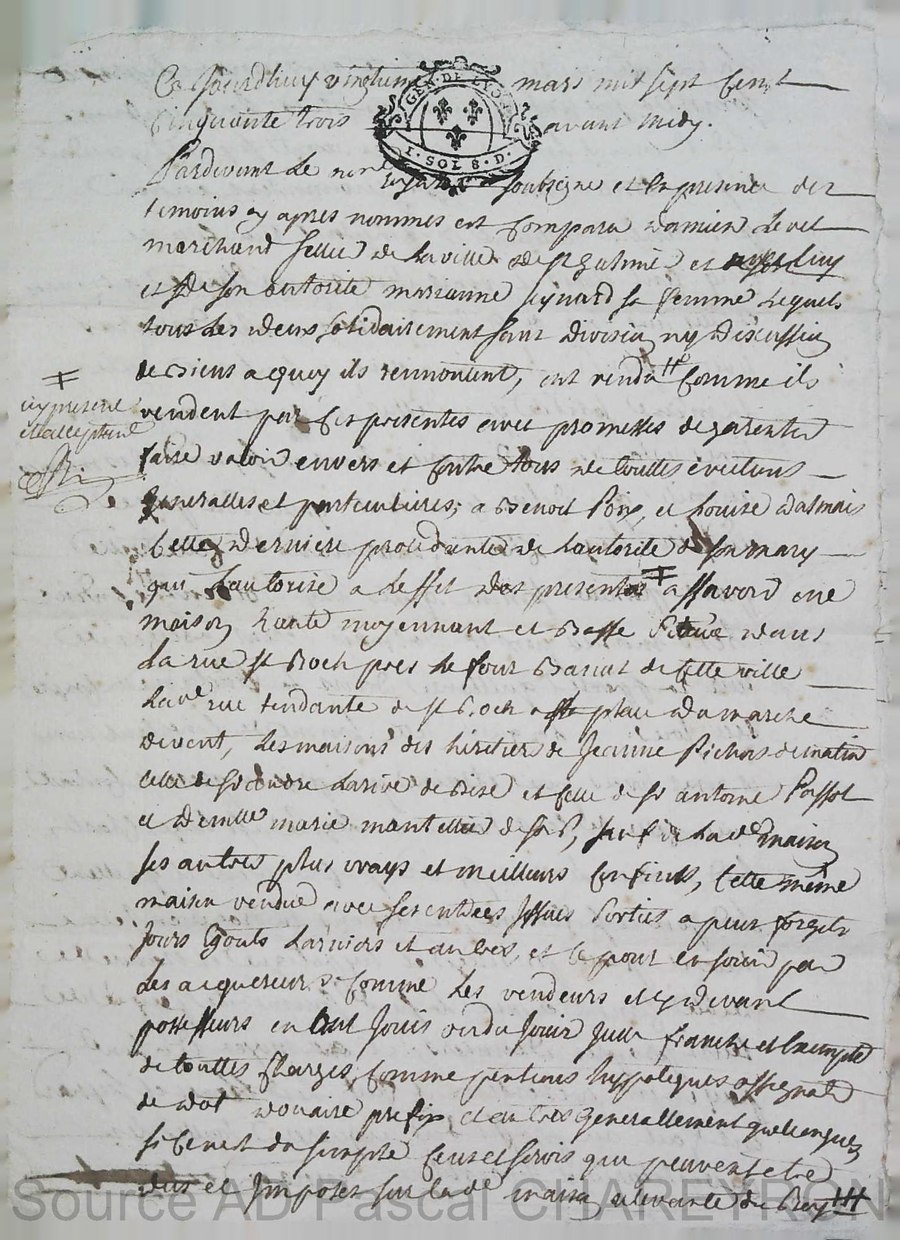 Ce Jourdhuy vingtun mars mil sept Cent
Cinquante trois avant midy.
GEN. DE LYON
1. SOL 8. D.
Pardevant Le notaire Soubsigne et En presence des
temoins cy apres nommes est Comparu Damien
marchand sellier de La ville de St galmie et
et De son autorite marianne sa femme Lequels
tous Les deux solidairement sans Division ny Discussion
de Biens a quoy ils rennontent, ont vendu Comme ils
vendent par Ces presentes avec promesses de garentir
faire valoir envers et Contre tous de touttes evictions
generalles et particulieres; a Benoit Pong et Louise dalmais
Cette derniere procedante de Lautorite de son mary
qui Lautorise a Leffet des presentes ‡ assavoir une
‡
icy present
et acceptant
maison haute moyennant et Basse situee dans
La rue St Roch pres Le four Banat de Cette ville
Lad. rue tendante de St Roch place du marche
devent, Les maisons des heritier de Jeanne Pichon de matin
celle de Larive de Bize et Celle de Sr antoine Passot
et Demlle marie mantellier de soir, sauf de Lad. maison
ses autres plus vrays et meilleurs Confins, Cette même
maison vendue avec ses entrées Issues Sorties
Jours Egouts Larmiers et autres, et Ce pour en Jouir par
Les acquereurs Comme Les vendeurs et cy devant
possesseurs en ont Jouis ou du Jouir franche et Exempte
de touttes Charges, Comme pentions hyppoteques
de dot douaire prefix et autres generallement quelconques
si Ce nest du simple Cens et servis qui peuvent etre
dus et Imposés sur Lad. maison
Source AD Pascal CHAREYRON